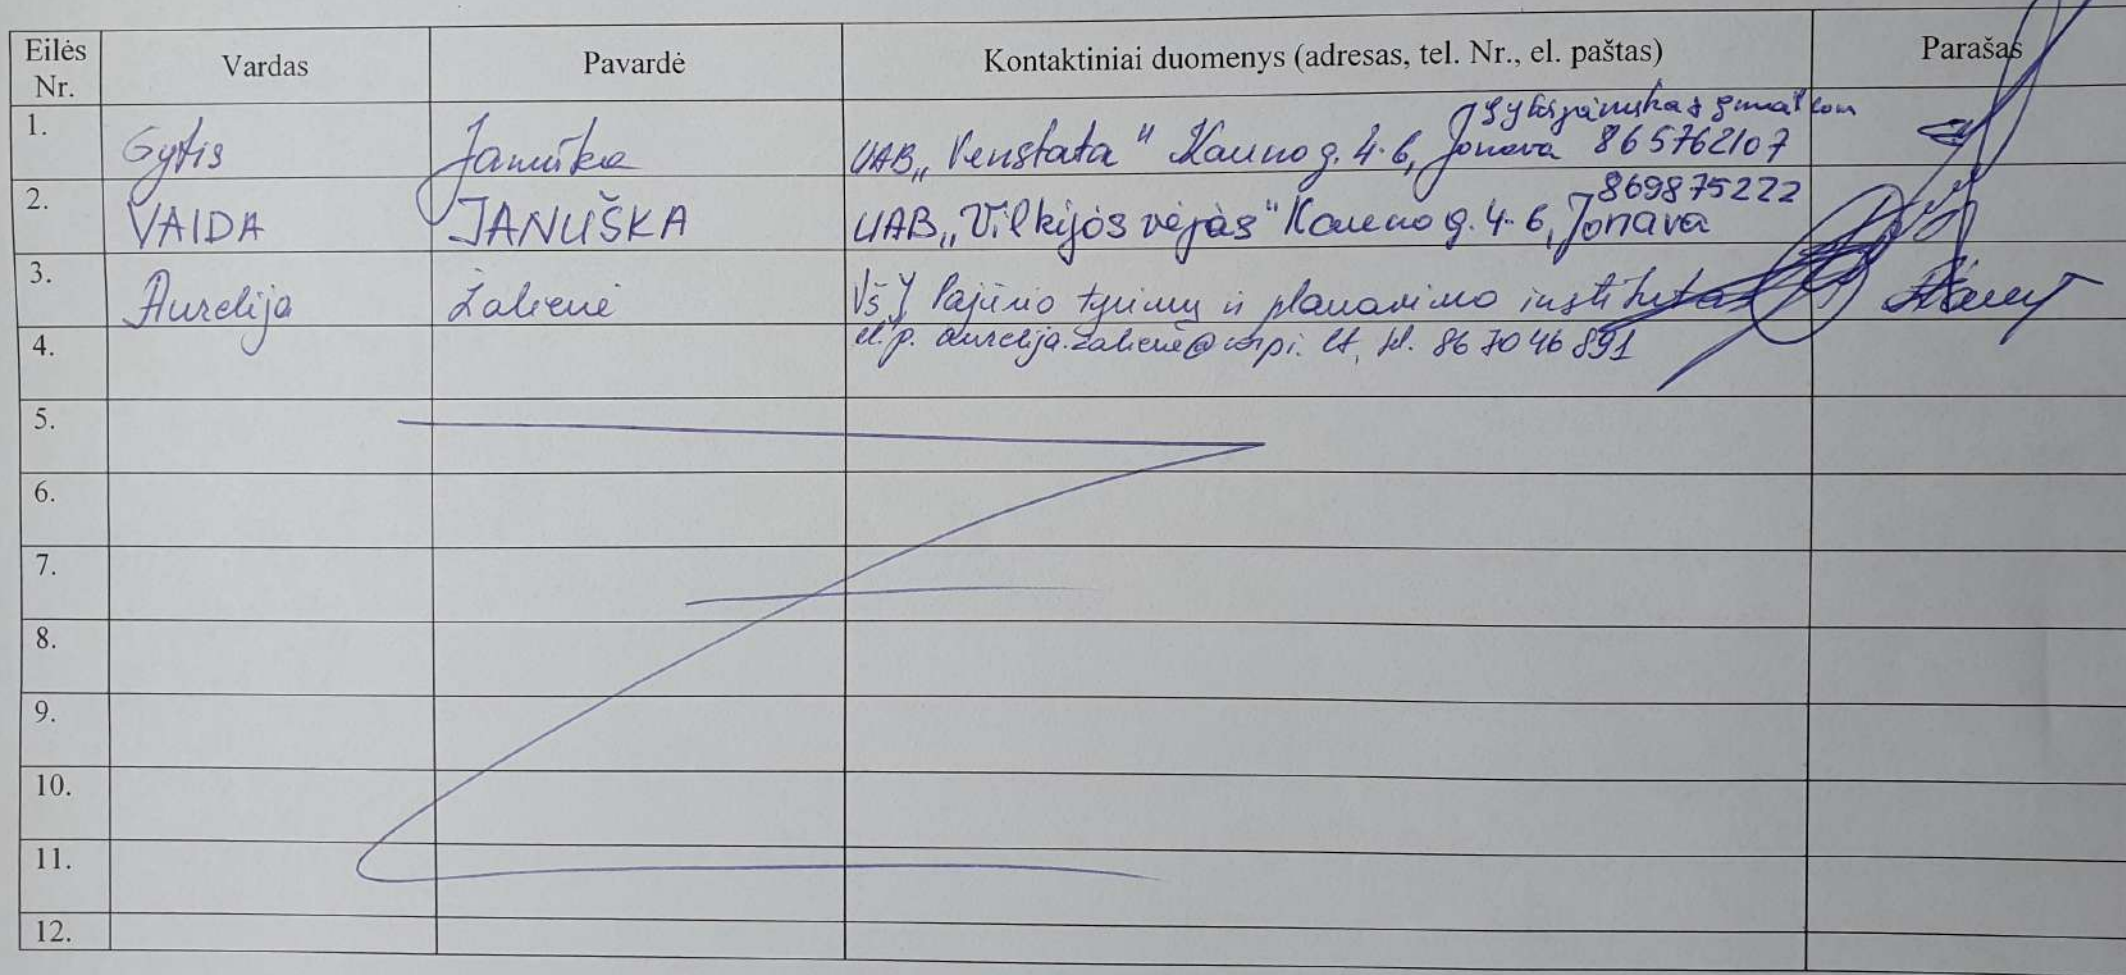 Eilės Nr. Vardas Pavardė Kontaktiniai duomenys (adresas, tel. Nr., el. paštas) Parašas
1. Gytis Januška UAB „Venstata" Kauno g. 4-6, Jonava 865762107
2. VAIDA JANUŠKA UAB „Vilkijos vėjas" Kauno g. 4-6, Jonava 869875222
3. Aurelija Žalienė VšĮ Pajūrio tyrimų ir planavimo institutas
4. el. p. aurelija.zaliene@corpi.lt, tel. 867046891
5.
6.
7.
8.
9.
10.
11.
12.